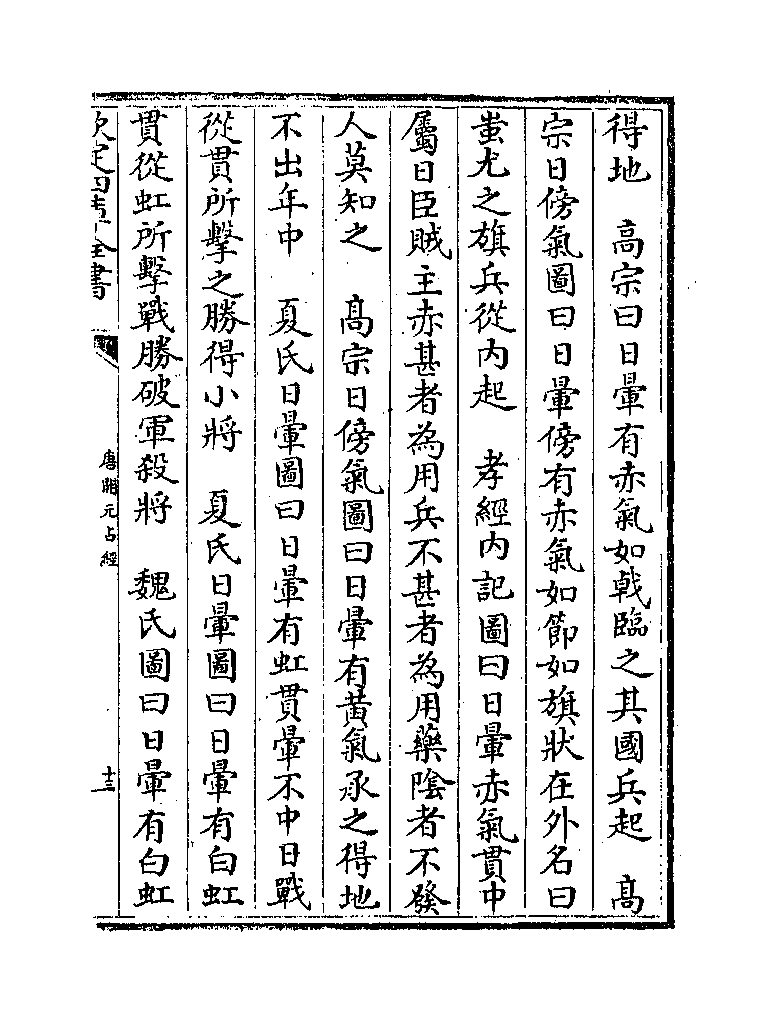 得地　高宗曰日暈有赤氣如戟臨之其國兵起　髙
宗日傍氣圖曰日暈傍有赤氣如節如旗狀在外名曰
蚩尤之旗兵從内起　孝經内記圖曰日暈赤氣貫中
屬日臣賊主赤甚者為用兵不甚者為用藥陰者不發
人莫知之　髙宗日傍氣圖曰日暈有黃氣承之得地
不出年中　夏氏日暈圖曰日暈有虹貫暈不中日戰
從貫所擊之勝得小將　夏氏日暈圖曰日暈有白虹
貫從虹所擊戰勝破軍殺將　魏氏圖曰日暈有白虹
欽定四庫全書
唐開元占經
十三